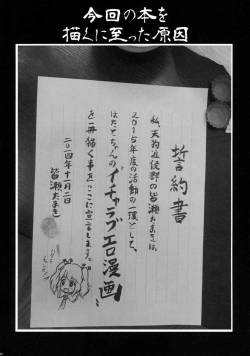 今回の本を
描くに至った原因
誓約書
私、天狗近従群の皆瀬たまきは、
2015年度の活動の一環として、
はたてちゃんの〝イチャラブエロ漫画〟
を一冊描く事をここに宣言します。
二〇一四年十一月二日
皆瀬たまき